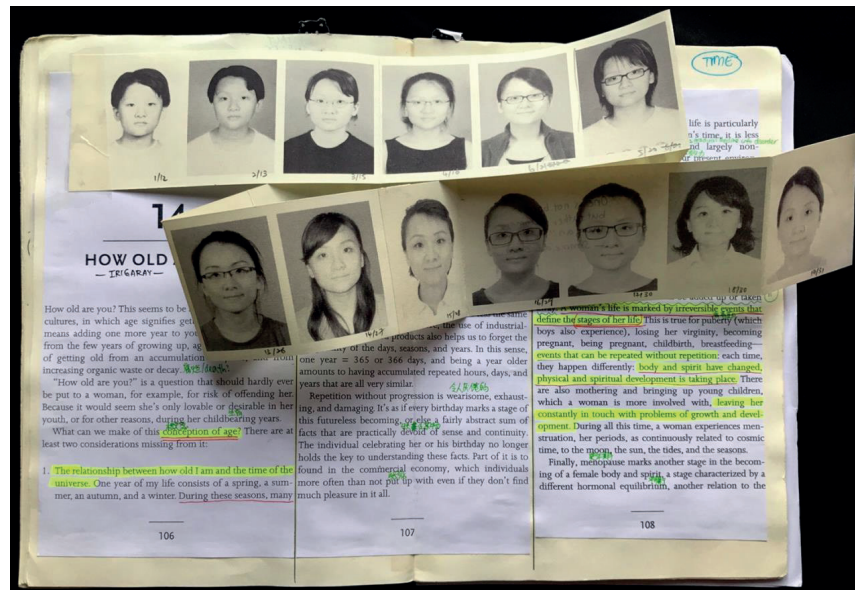 TIME
1/12
2/13
3/15
14
HOW OLD A
— IRIGARAY —
14/27
16/29
18/30
19/31
How old are you? This seems to be a
cultures, in which age signifies get
means adding one more year to you
from the few years of growing up, ag
of getting old from an accumulation from
increasing organic waste or decay.
"How old are you?" is a question that should hardly ever
be put to a woman, for example, for risk of offending her.
Because it would seem she's only lovable or desirable in her
youth, or for other reasons, during her childbearing years.
What can we make of this conception of age? There are at
least two considerations missing from it:
1. The relationship between how old I am and the time of the
universe. One year of my life consists of a spring, a sum-
mer, an autumn, and a winter. During these seasons, many
106
the same
the use of industrial-
products also helps us to forget the
of the days, seasons, and years. In this sense,
one year = 365 or 366 days, and being a year older
amounts to having accumulated repeated hours, days, and
years that are all very similar.
Repetition without progression is wearisome, exhaust-
ing, and damaging. It's as if every birthday marks a stage of
this futureless becoming, or else a fairly abstract sum of
facts that are practically devoid of sense and continuity.
The individual celebrating her or his birthday no longer
holds the key to understanding these facts. Part of it is to
found in the commercial economy, which individuals
more often than not put up with even if they don't find
much pleasure in it all.
107
life is particularly
n's time, it is less
nd largely non-
ur present environ-
added up or taken
A woman's life is marked by irreversible events that
define the stages of her life. This is true for puberty (which
boys also experience), losing her virginity, becoming
pregnant, being pregnant, childbirth, breastfeeding—
events that can be repeated without repetition: each time,
they happen differently: body and spirit have changed,
physical and spiritual development is taking place. There
are also mothering and bringing up young children,
which a woman is more involved with, leaving her
constantly in touch with problems of growth and devel-
opment. During all this time, a woman experiences men-
struation, her periods, as continuously related to cosmic
time, to the moon, the sun, the tides, and the seasons.
Finally, menopause marks another stage in the becom-
ing of a female body and spirit, a stage characterized by a
different hormonal equilibrium, another relation to the
108